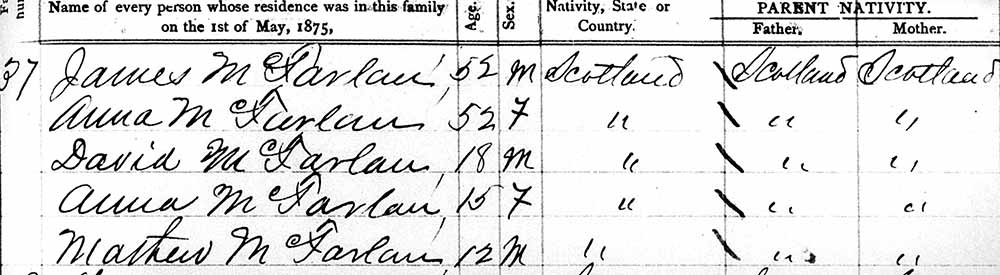 Name of every person whose residence was in this family on the 1st of May, 1875, Age. Sex. Nativity, State or Country. PARENT NATIVITY. Father. Mother.
37 James McFarlan 52 M Scotland Scotland Scotland
Anna McFarlan 52 F " " "
David McFarlan 18 M " " "
Anna McFarlan 15 F " " "
Mathew McFarlan 12 M " " "